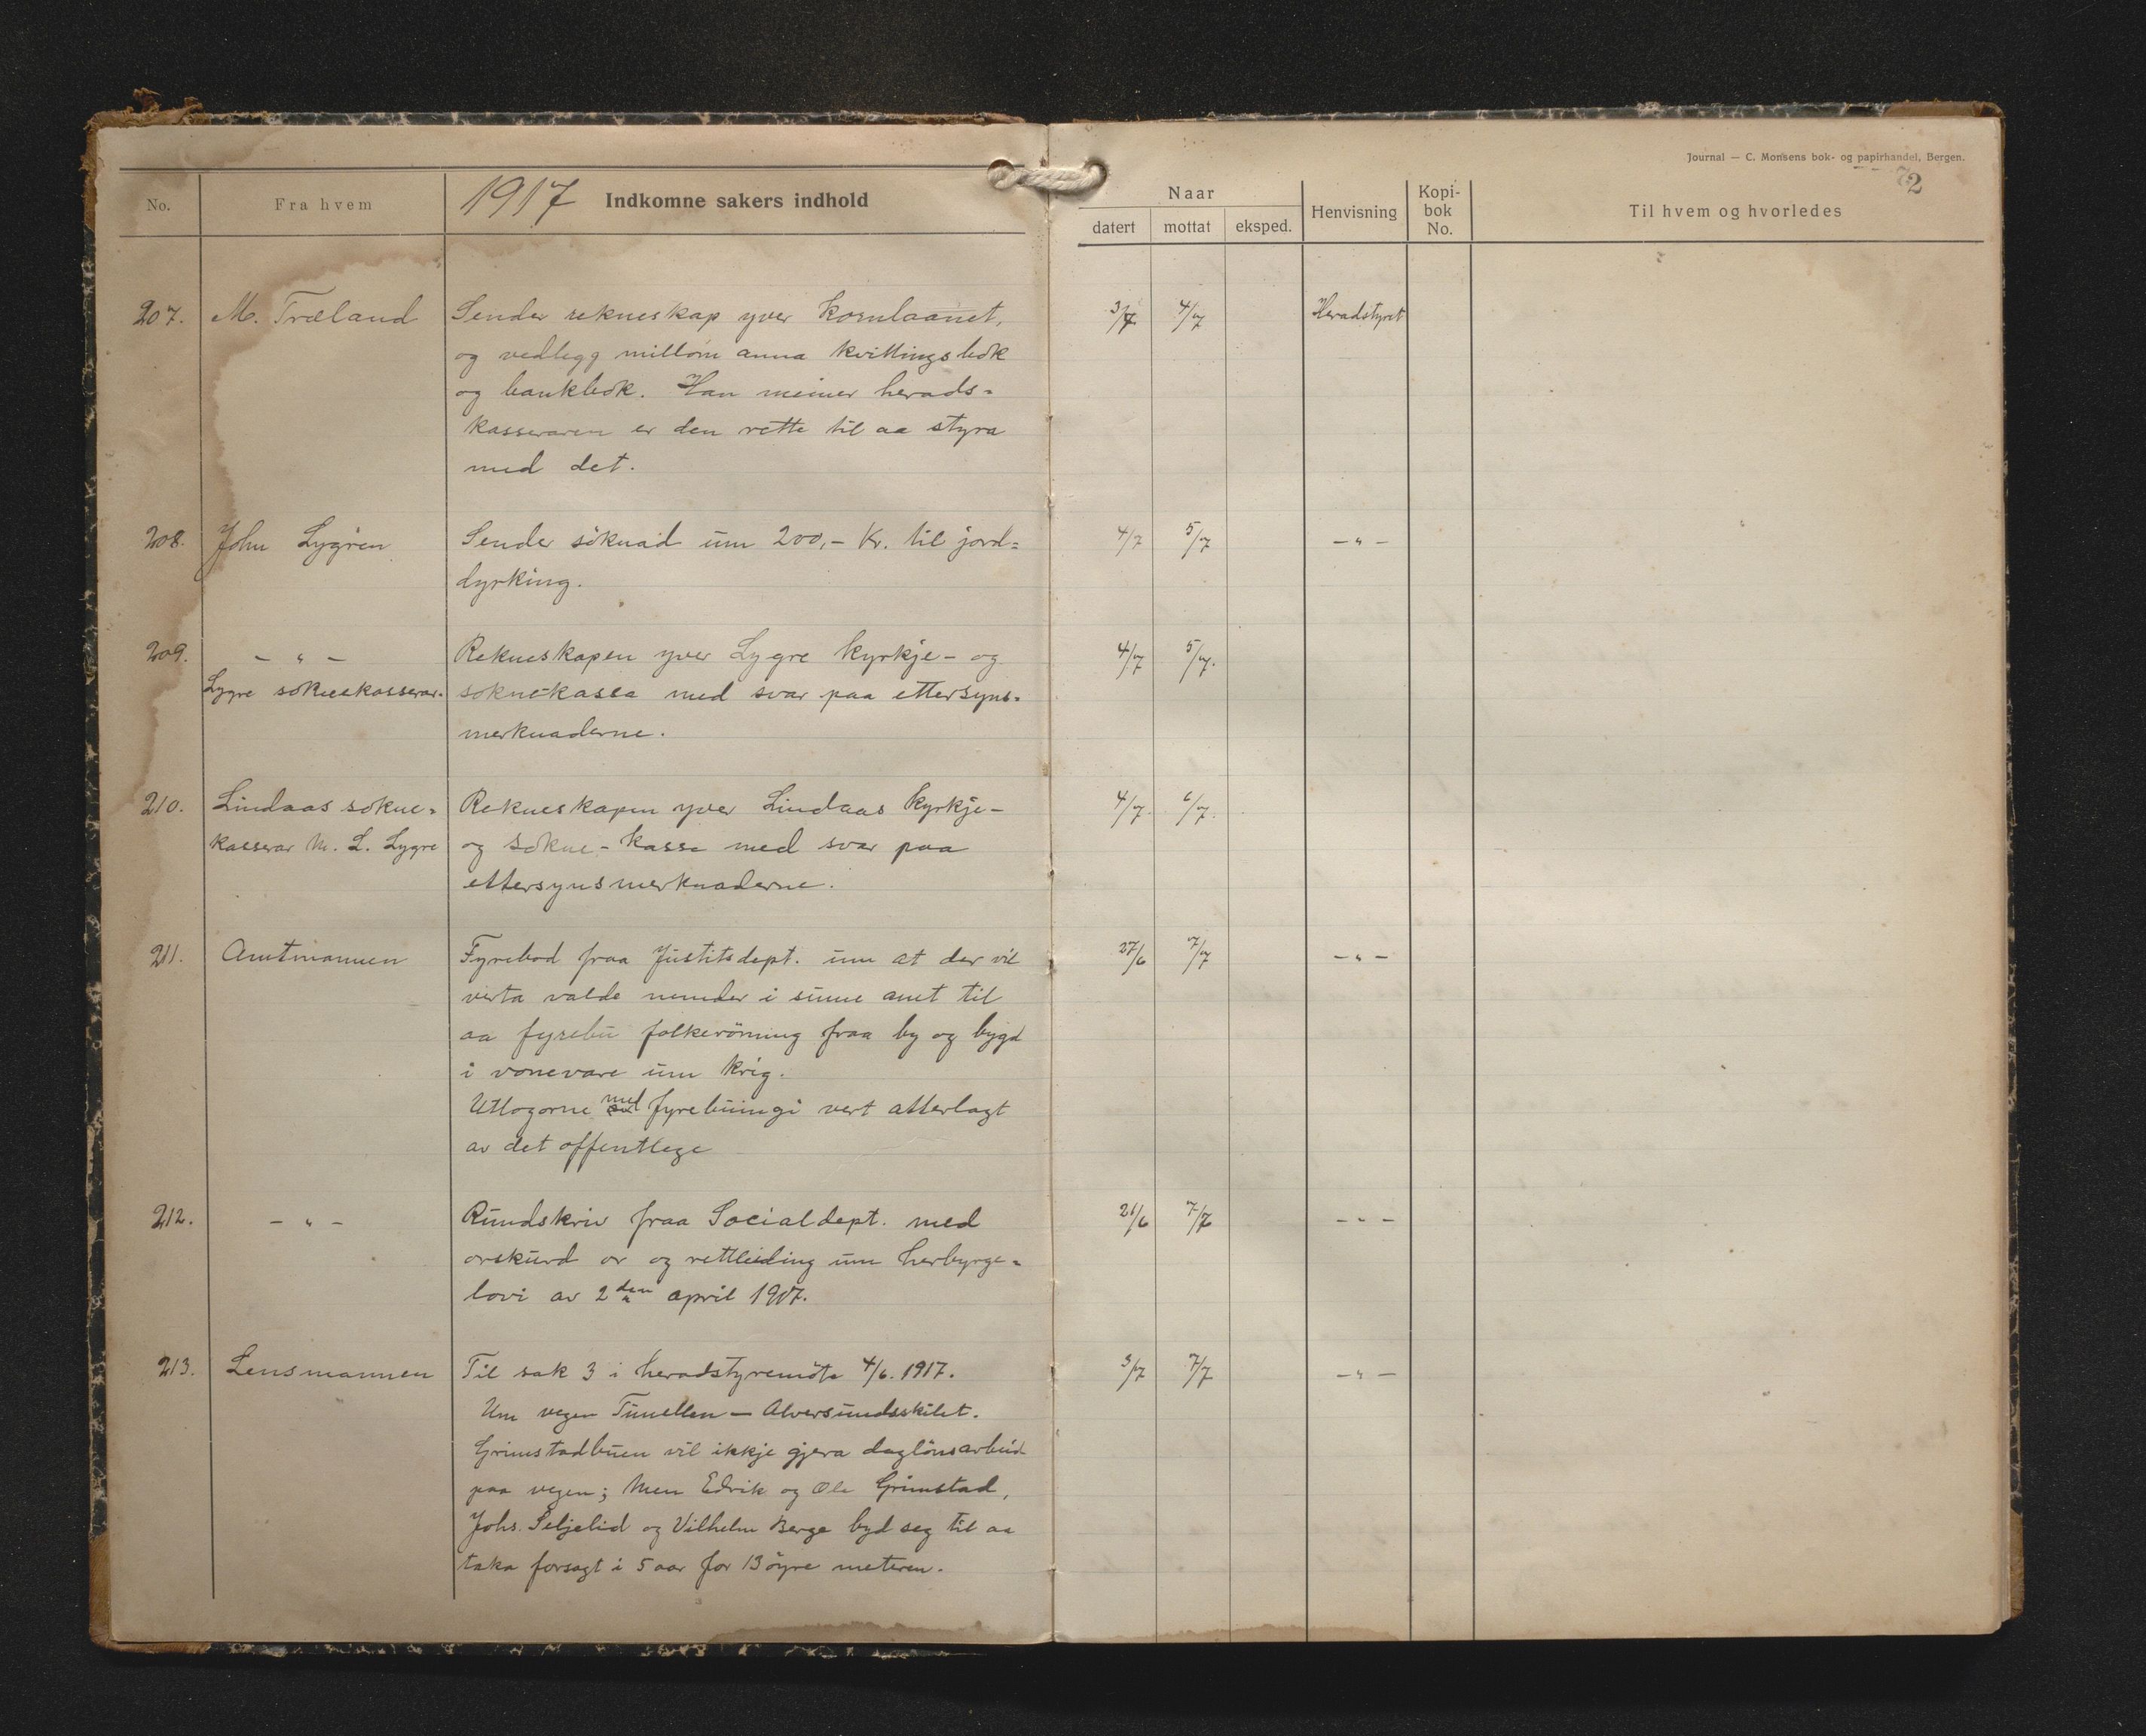 Journal — C. Monsens bok- og papirhandel, Bergen.
2
No. Fra hvem 1917 Indkomne sakers indhold Naar datert mottat eksped. Henvisning Kopi-bok No. Til hvem og hvorledes
207. M. Træland Sender rekneskap yver kornlaanet, 3/7 4/7 Heradstyret
og vedlegg millom anna kvittingsbok
og bankbok. Han meiner herads=
kasseraren er den rette til aa styra
med det.
208. John Lygren Sender söknad um 200,- Kr. til jord= 4/7 5/7 – " –
dyrking.
209. – " – Rekneskapen yver Lygre kyrkje- og 4/7 5/7.
Lygre sokneskasserar. soknekassa med svar paa ettersyns=
merknaderne.
210. Lindaas sokne= Rekneskapen yver Lindaas kyrkje- 4/7. 6/7.
kasserar M. L. Lygre og sokne-kassa med svar paa
ettersynsmerknaderne.
211. Amtmannen Fyrebod fraa Justitsdept. um at der vil 27/6 7/7 – " –
verta valde nemder i sume amt til
aa fyrebu folkeröming fraa by og bygd
i vonevare um krig.
Utlogorne med fyrebuingi vert atterlagt
av det offentlege
212. – " – Rundskriv fraa Socialdept. med 21/6 7/7 – " –
orskurd or og rettleiding um herbyrge=
lovi av 2den april 1917.
213. Lensmannen Til sak 3 i heradstyremöte 4/6. 1917. 3/7 7/7 – " –
Um vegen Tunellen – Alversundsskilet.
Grimstadbuen vil ikkje gjera daglönsarbeid
paa vegen; Men Edvik og Ole Grimstad,
Johs. Seljelid og Vilhelm Berge byd seg til aa
taka forsagt i 5 aar for 13 öyre meteren.